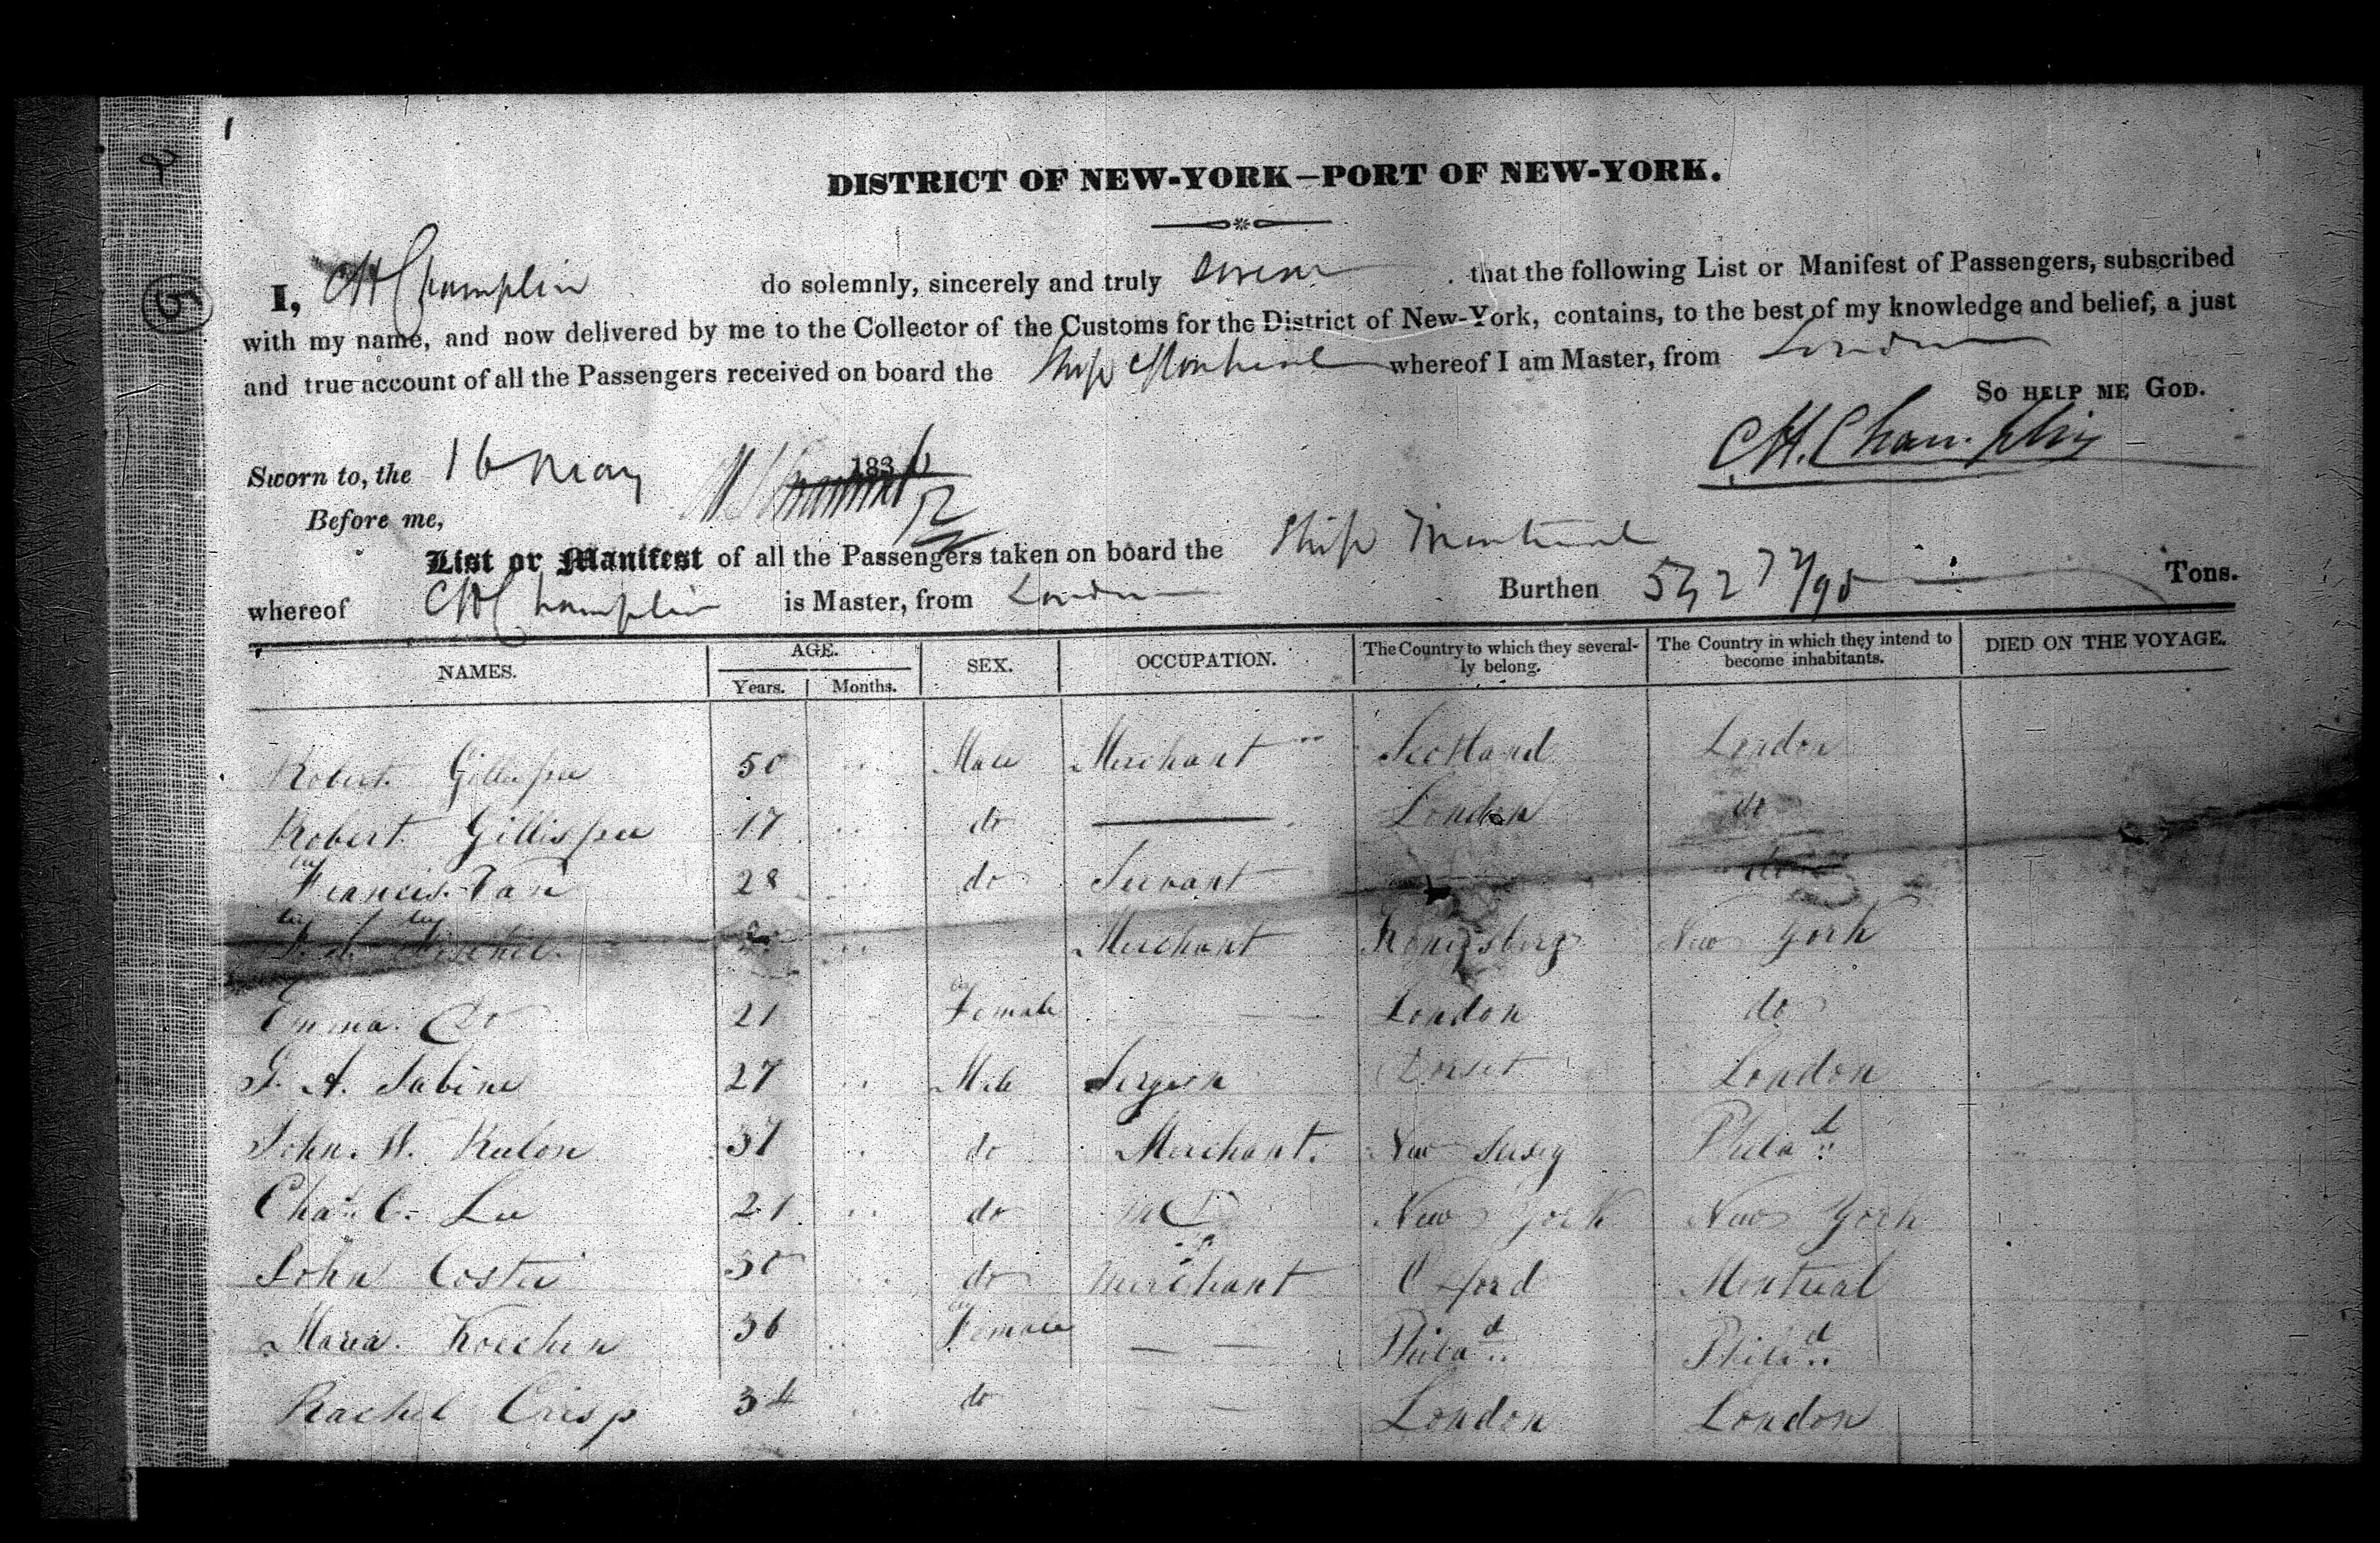 DISTRICT OF NEW-YORK—PORT OF NEW-YORK.
I, CH Champlin do solemnly, sincerely and truly swear that the following List or Manifest of Passengers, subscribed
with my name, and now delivered by me to the Collector of the Customs for the District of New-York, contains, to the best of my knowledge and belief, a just
and true account of all the Passengers received on board the Ship Montreal whereof I am Master, from London
So HELP ME GOD.
C.H. Champlin
Sworn to, the 16 May 183
Before me,
List or Manifest of all the Passengers taken on board the Ship Montreal
whereof CH Champlin is Master, from London Burthen Tons.
NAMES. AGE. SEX. OCCUPATION. The Country to which they several- The Country in which they intend to DIED ON THE VOYAGE.
Years. Months. ly belong. become inhabitants.
Robert Gillespie 50 Male Merchant Scotland London
Robert Gillispie 17 do London do
Francis 28 do Servant
Merchant Konigsberg New York
Emma Do 21 Female London do
A. Sabine 27 Male Dorset London
John. W. Rulon 37 do Merchant. New Jersey Philad
Chas C. Lee 21 do New York New York
John Coster 30 do Merchant Oxford Montreal
Maria 36 Female Philad Philad
Rachel Crisp 34 do London London